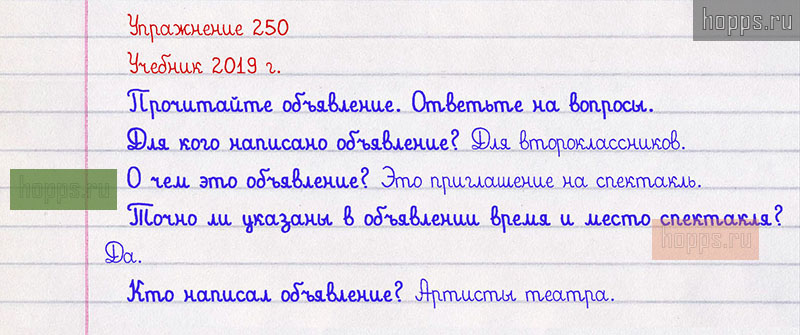 hopps.ru
Упражнение 250
Учебник 2019 г.
Прочитайте объявление. Ответьте на вопросы.
Для кого написано объявление? Для второклассников.
hopps.ru
О чем это объявление? Это приглашение на спектакль.
Точно ли указаны в объявлении время и место спектакля?
hopps.ru
Да.
Кто написал объявление? Артисты театра.